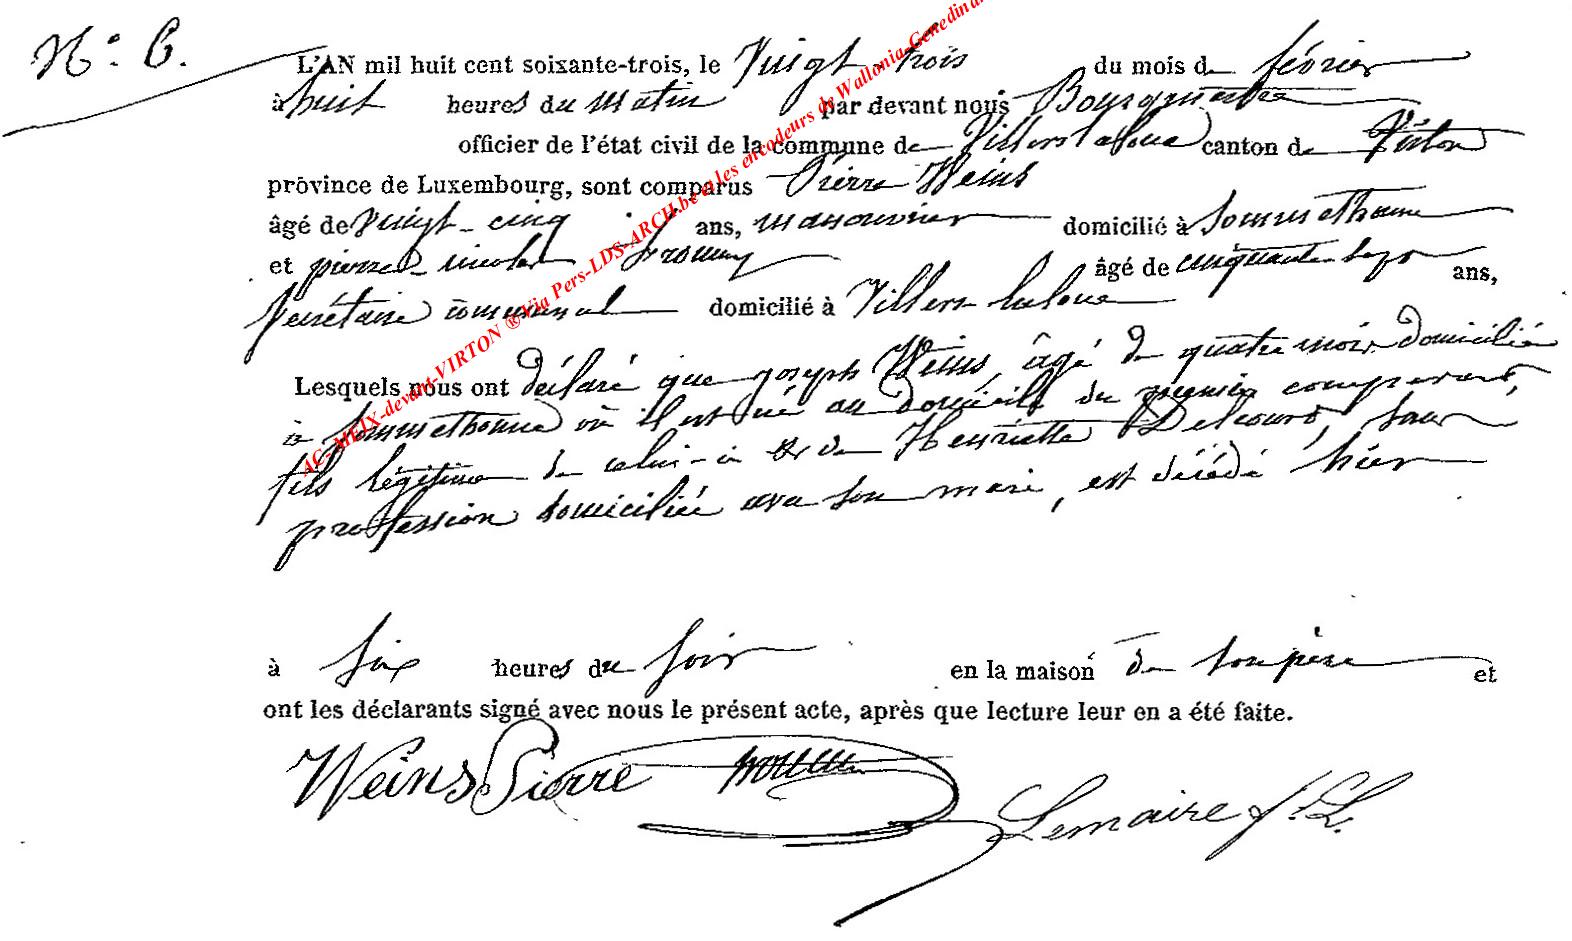 N.º 6.
L'AN mil huit cent soixante-trois, le Vingt-trois du mois de février
à huit heures du matin par devant nous Bourgmestre
officier de l'état civil de la commune de Villers la loue canton de Virton
province de Luxembourg, sont comparus Pierre Weins
âgé de Vingt-cinq ans, manouvrier domicilié à Sommethonne
et pierre nicolas âgé de cinquante ans,
Secrétaire communal domicilié à Villers la loue
Lesquels nous ont déclaré que joseph Weins, âgé de quatre mois domicilié
à Sommethonne où il est né au domicile du premier comparant,
fils légitime de celui-ci & de Henriette Delcourt, sans
profession domiciliée avec son mari, est décédé hier
à six heures du soir en la maison de son père et
ont les déclarants signé avec nous le présent acte, après que lecture leur en a été faite.
Weins Pierre Lemaire J. L.
AC-MEIX-devant-VIRTON ® Via Pers-LDS-ARCH.be et les encodeurs de Wallonia-Genedinan